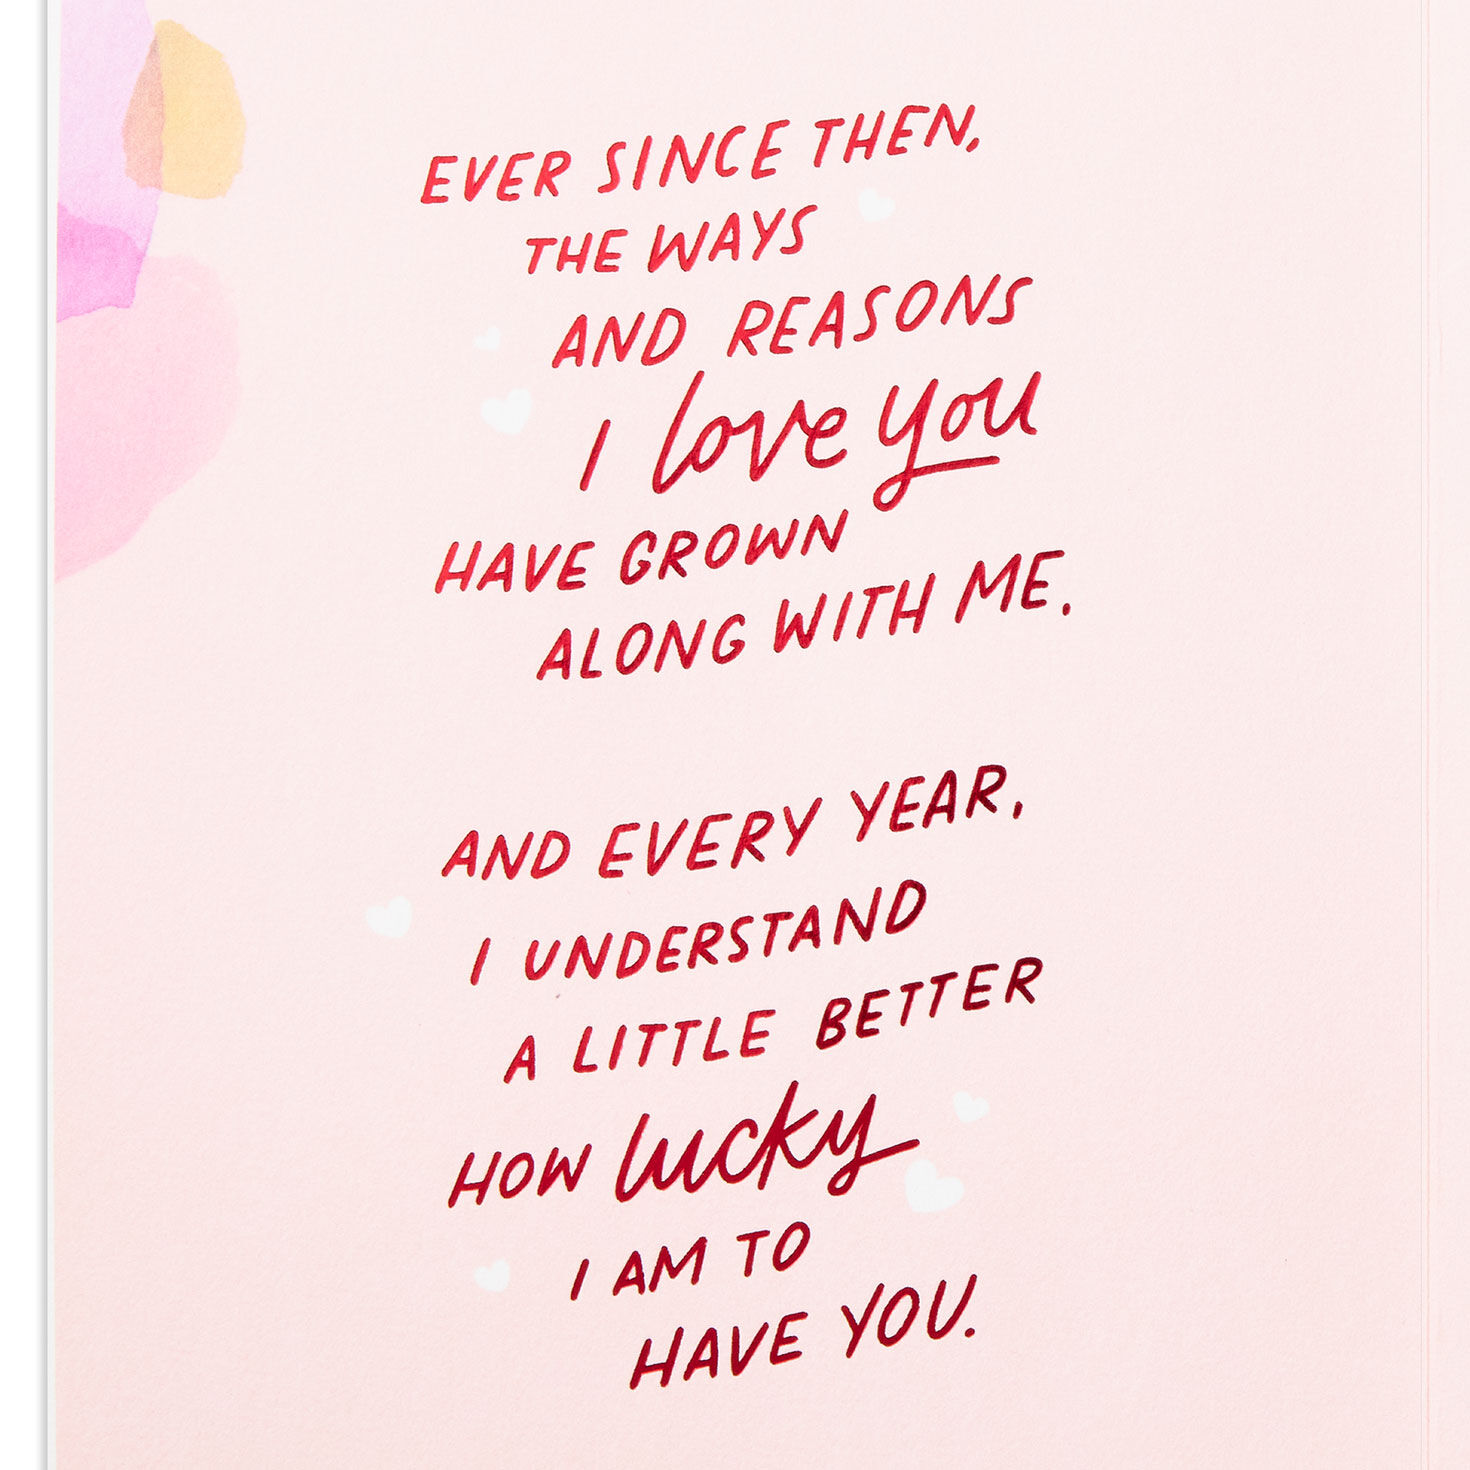 EVER SINCE THEN,
THE WAYS
AND REASONS
I love you
HAVE GROWN
ALONG WITH ME.
AND EVERY YEAR,
I UNDERSTAND
A LITTLE BETTER
HOW lucky
I AM TO
HAVE YOU.